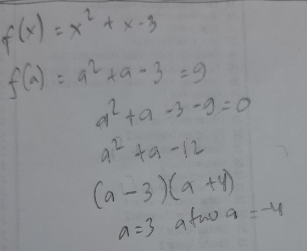 f(x) = x² + x - 3
f(a) = a² + a - 3 = 9
a² + a - 3 - 9 = 0
a² + a - 12
(a - 3)(a + 4)
a = 3 atau a = -4